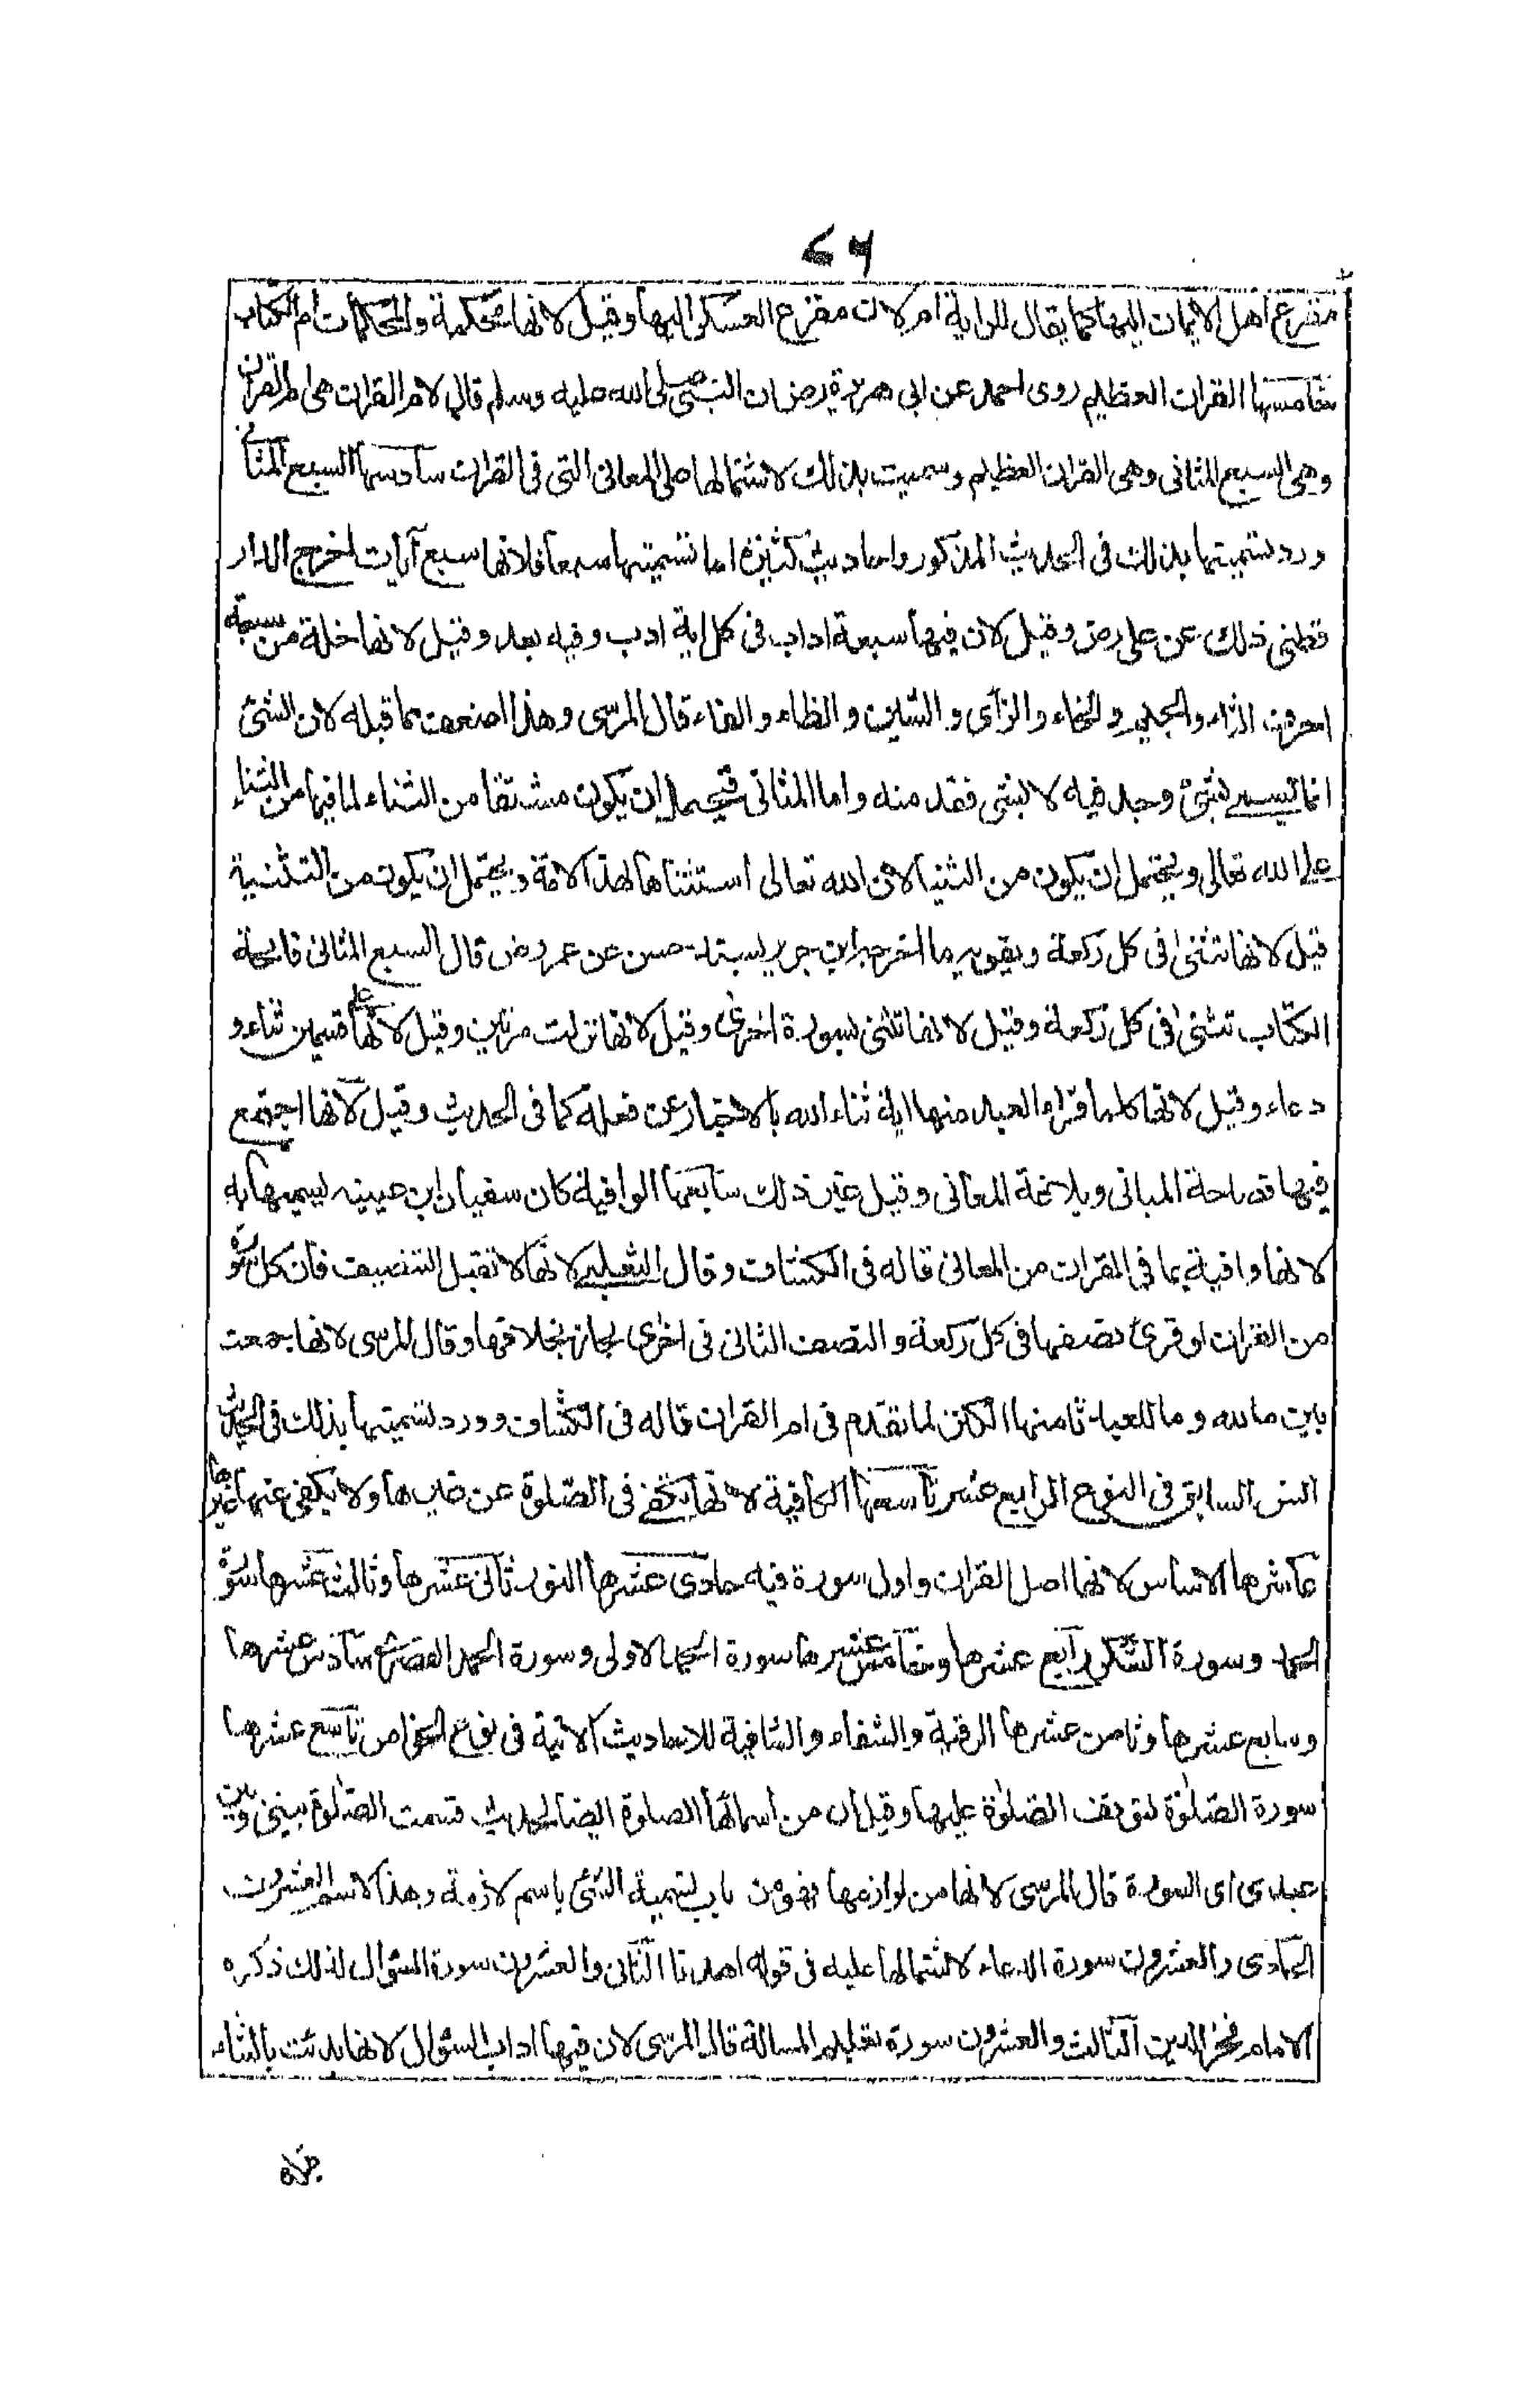 ۷۶
مفزع اهل الايمان اليها كما يقال للراية ام لان مفزع العسكر اليها وقيل لانها محكمة والمحكمات ام الكتاب
خامسها القران العظيم روى احمد عن ابى هريرة رض ان النبى صلى الله عليه وسلم قال لام القران هى ام القران
وهى السبع المثانى وهى القران العظيم وسميت بذلك لاشتمالها على المعانى التى فى القران سادسها السبع المثانى
ورد تسميتها بذلك فى الحديث المذكور واحاديث كثيرة اما تسميتها سبعا فلانها سبع آيات اخرج الدار
قطنى ذلك عن على رض وقيل لان فيها سبعة اداب فى كل اية ادب وفيه بعد وقيل لانها خلة من سبعة
احرف الثاء والجيم والخاء والزاى والشين والظاء والفاء قال المرسى وهذا اضعف مما قبله لان الشئ
انما يسمے بشئ وجد فيه لا بشى فقد منه واما المثانى فيحتمل ان يكون مشتقا من الثناء لما فيها من الثناء
على الله تعالى ويحتمل ان يكون من الثنيا لان الله تعالى استثناها لهذه الامة ويحتمل ان يكون من التثنية
قيل لانها تثنى فى كل ركعة ويقويه ما اخرجه ابن جرير بسند حسن عن عمر رض قال السبع المثانى فاتحة
الكتاب تثنى فى كل ركعة وقيل لانها تثنى بسورة اخرى وقيل لانها نزلت مرتين وقيل لانها على قسمين ثناء و
دعاء وقيل لانها كلما قرا العبد منها اية ثناه الله بالاخبار عن فعله كما فى الحديث وقيل لانها اجتمع
فيها فصاحة المبانى وبلاغة المعانى وقيل غير ذلك سابعها الوافية كان سفيان ابن عيينه يسميها به
لانها وافية بما فى القران من المعانى قاله فى الكشاف وقال الثعلبے لانها لا تقبل التنصيف فان كل سورة
من القران لو قرئ نصفها فى كل ركعة والنصف الثانى فى اخرى لجاز بخلافها وقال المرسى لانها جمعت
بين ما لله وما للعبد ثامنها الكنز لما تقدم فى ام القران قاله فى الكشاف وورد تسميتها بذلك فى الحديث
انس السابق فى النوع الرابع عشر تاسعها الكافية لانها تكفے فى الصلوة عن غيرها ولا يكفى عنها غيرها
عاشرها الاساس لانها اصل القران واول سورة فيه حادى عشرها النور ثانى عشرها وثالث عشرها سورة
الحمد وسورة الشكر رابع عشرها وخامس عشرها سورة الحمد الاولى وسورة الحمد القصرى سادس عشرها
وسابع عشرها وثامن عشرها الرقية والشفاء والشافية للاحاديث الاتية فى نوع الخواص تاسع عشرها
سورة الصلوة لتوقف الصلوة عليها وقيل ان من اسمائها الصلوة ايضا لحديث قسمت الصلوة بينى وبين
عبدى اى السورة قال المرسى لانها من لوازمها فهو من باب تسمية الشئ باسم لازمه وهذا الاسم العشرون
الحادى والعشرون سورة الدعاء لاشتمالها عليه فى قوله اهدنا الثانى والعشرون سورة السؤال لذلك ذكره
الامام فخر الدين الثالث والعشرون سورة تعليم المسالة قال المرسى لان فيها اداب السؤال لانها بدئت بالثناء